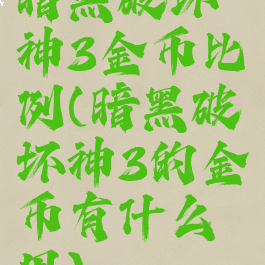 暗黑破坏
神3金币比
例(暗黑破
坏神3的金
币有什么
用)